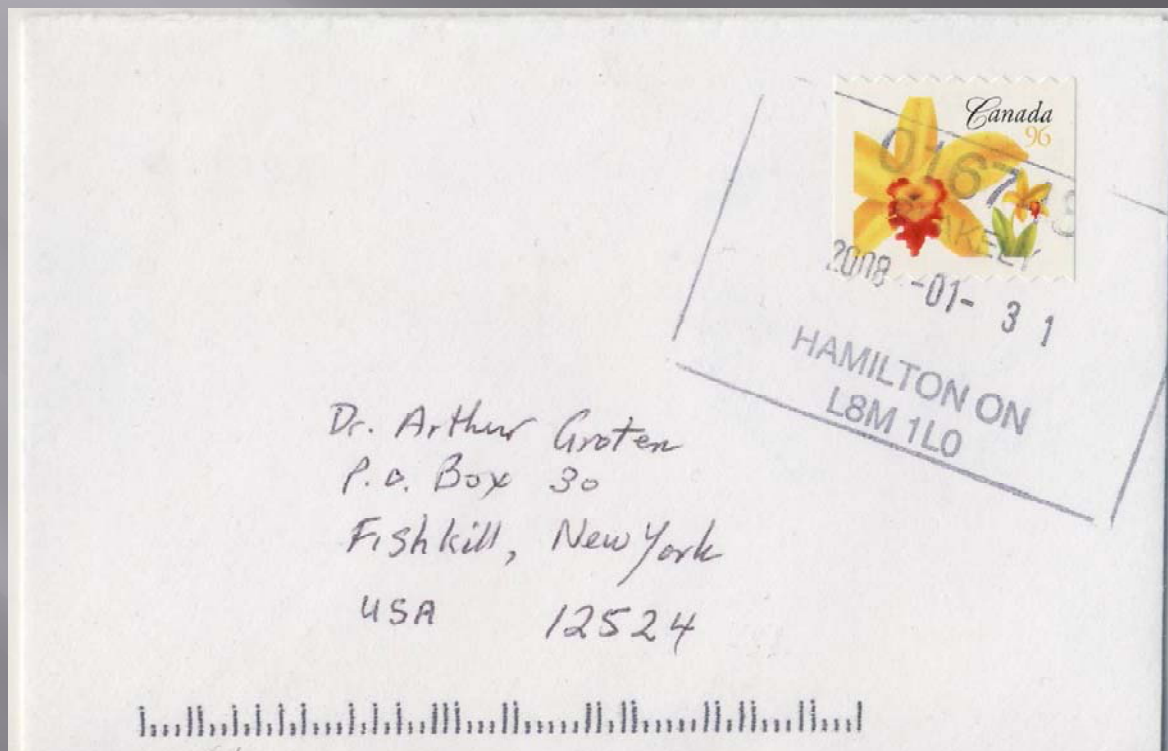 Canada
96
2008 -01- 31
HAMILTON ON
L8M 1L0
Dr. Arthur Groten
P.O. Box 30
Fishkill, New York
USA 12524